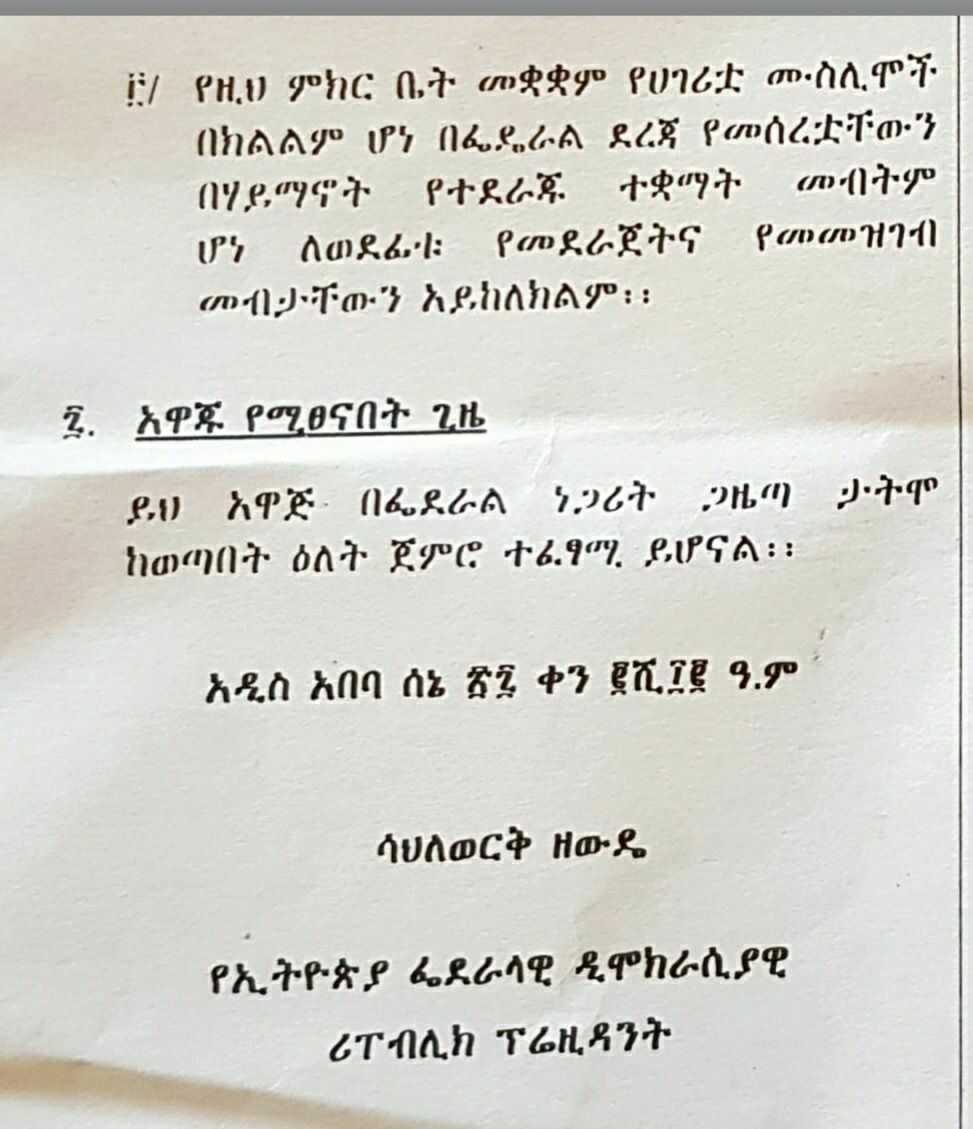 ፫/ የዚህ ምክር ቤት መቋቋም የሀገሪቷ ሙስሊሞች
በክልልም ሆነ በፌዴራል ደረጃ የመሰረቷቸውን
በሃይማኖት የተደራጁ ተቋማት መብትም
ሆነ ለወደፊቱ የመደራጀትና የመመዝገብ
መብታቸውን አይከለክልም፡፡
፯. አዋጁ የሚፀናበት ጊዜ
ይህ አዋጅ በፌደራል ነጋሪት ጋዜጣ ታትሞ
ከወጣበት ዕለት ጀምሮ ተፈፃሚ ይሆናል፡፡
አዲስ አበባ ሰኔ ፳፯ ቀን ፪ሺ፲፪ ዓ.ም
ሳህለወርቅ ዘውዴ
የኢትዮጵያ ፌደራላዊ ዲሞክራሲያዊ
ሪፐብሊክ ፕሬዚዳንት